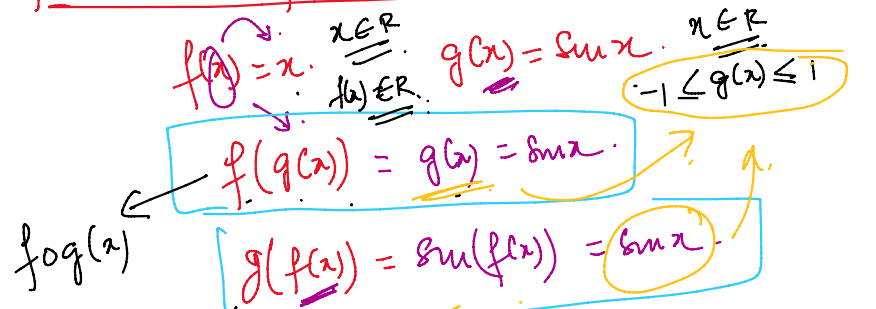 f(x) = x. x ∈ R g(x) = sin x. x ∈ R
f(x) ∈ R. -1 ≤ g(x) ≤ 1
f(g(x)) = g(x) = sin x.
fog(x)
g(f(x)) = sin(f(x)) = sin x.